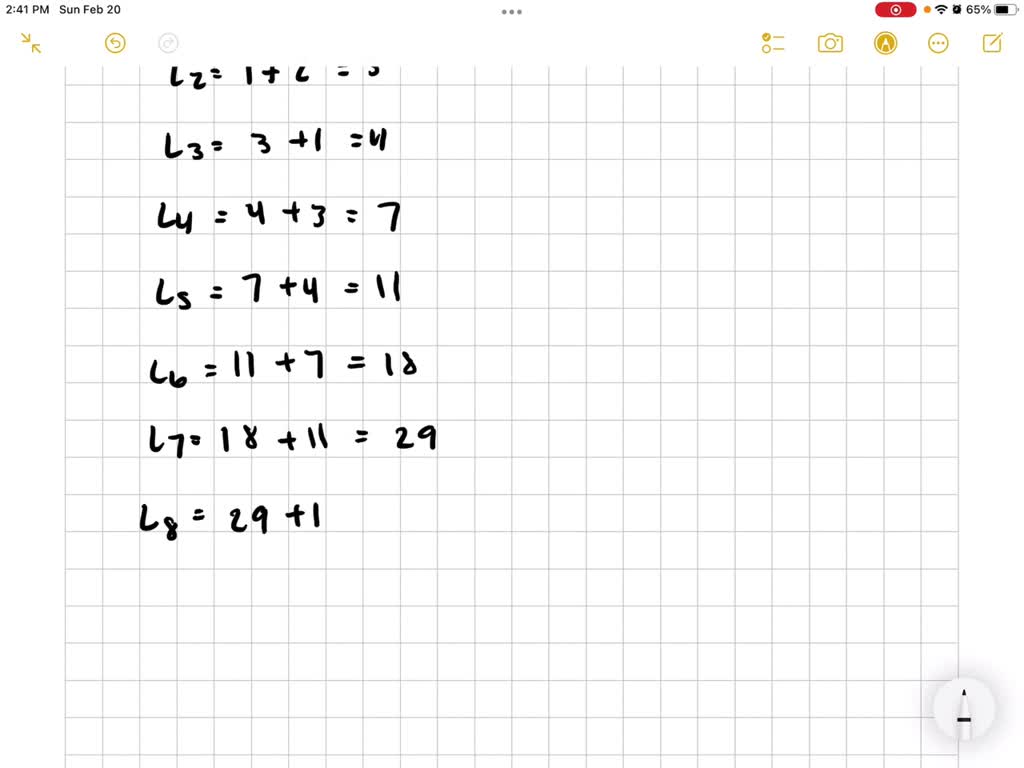 2:41 PM Sun Feb 20
65%
L2= 1+2 = 3
L3= 3 +1 =4
L4 = 4 +3 = 7
L5 = 7 +4 = 11
L6 = 11 +7 = 18
L7= 18 +11 = 29
L8 = 29 +1